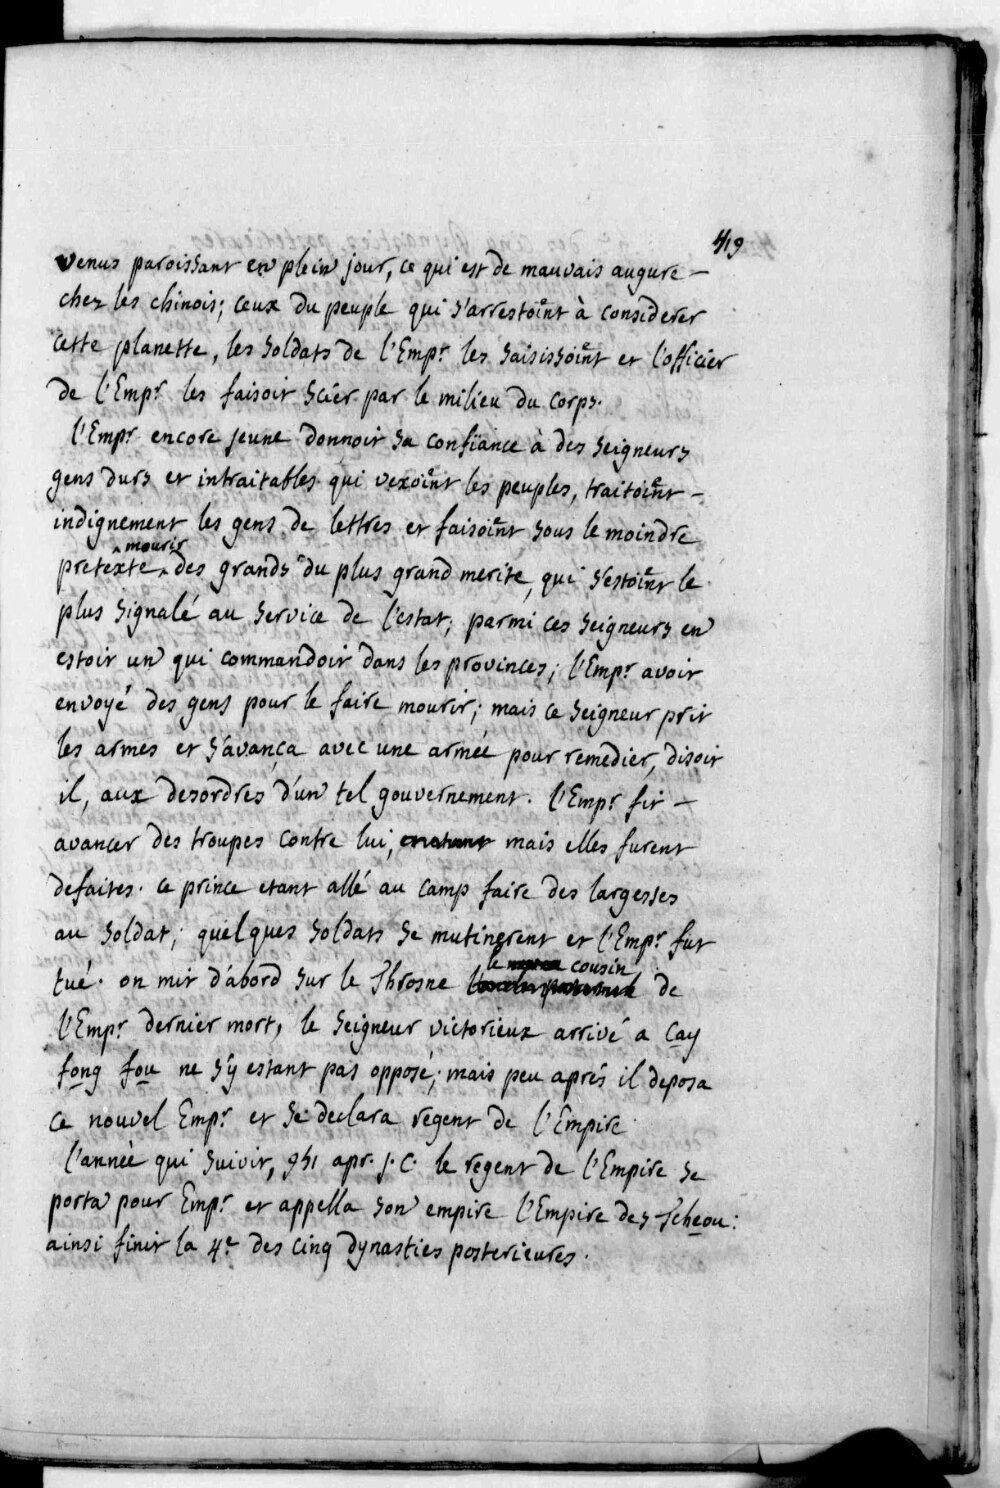 419
venus paroissant en plein jour, ce qui est de mauvais augure –
chez les chinois; ceux du peuple qui s'arrestoint à considerer
cette planette, les soldats de l'Empr. les saisissoint et l'officier
de l'Empr. les faisoit scier par le milieu du corps.
l'Empr. encore jeune donnoit sa confiance à des seigneurs
gens durs et intraitables qui vexoint les peuples, traitoint –
indignement les gens de lettres et faisoint sous le moindre
mourir
pretexte des grands du plus grand merite, qui s'estoint le
plus signalé au service de l'estat; parmi ces seigneurs en
estoit un qui commandoit dans les provinces; l'Empr. avoit
envoyé des gens pour le faire mourir; mais ce seigneur prit
les armes et s'avança avec une armée pour remedier, disoit
il, aux desordres d'un tel gouvernement. l'Empr. fit –
avancer des troupes contre lui, mais elles furent
defaites. ce prince etant allé au camp faire des largesses
au soldat; quelques soldats se mutinerent et l'Empr. fut
le cousin
tué. on mit d'abord sur le Throsne de
l'Empr. dernier mort, le seigneur victorieux arrivé a Cay
fong fou ne s'y estant pas opposé; mais peu aprés il deposa
ce nouvel Empr. et se declara regent de l'Empire.
l'année qui suivit, 951 apr. J. C. le regent de l'Empire se
porta pour Empr. et appella son empire l'Empire des Tcheou:
ainsi finit la 4e. des cinq dynasties posterieures.